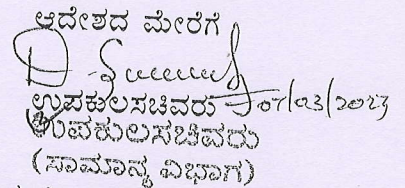 ಆದೇಶದ ಮೇರೆಗೆ
ಉಪಕುಲಸಚಿವರು 07/03/2023
ಉಪಕುಲಸಚಿವರು
(ಸಾಮಾನ್ಯ ವಿಭಾಗ)